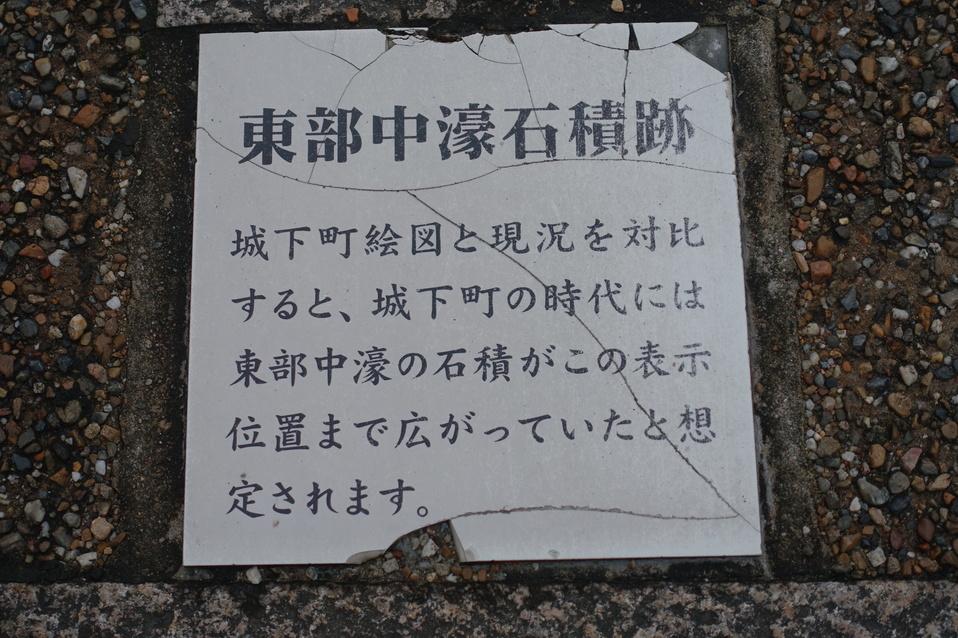 東部中濠石積跡
城下町絵図と現況を対比
すると、城下町の時代には
東部中濠の石積がこの表示
位置まで広がっていたと想
定されます。